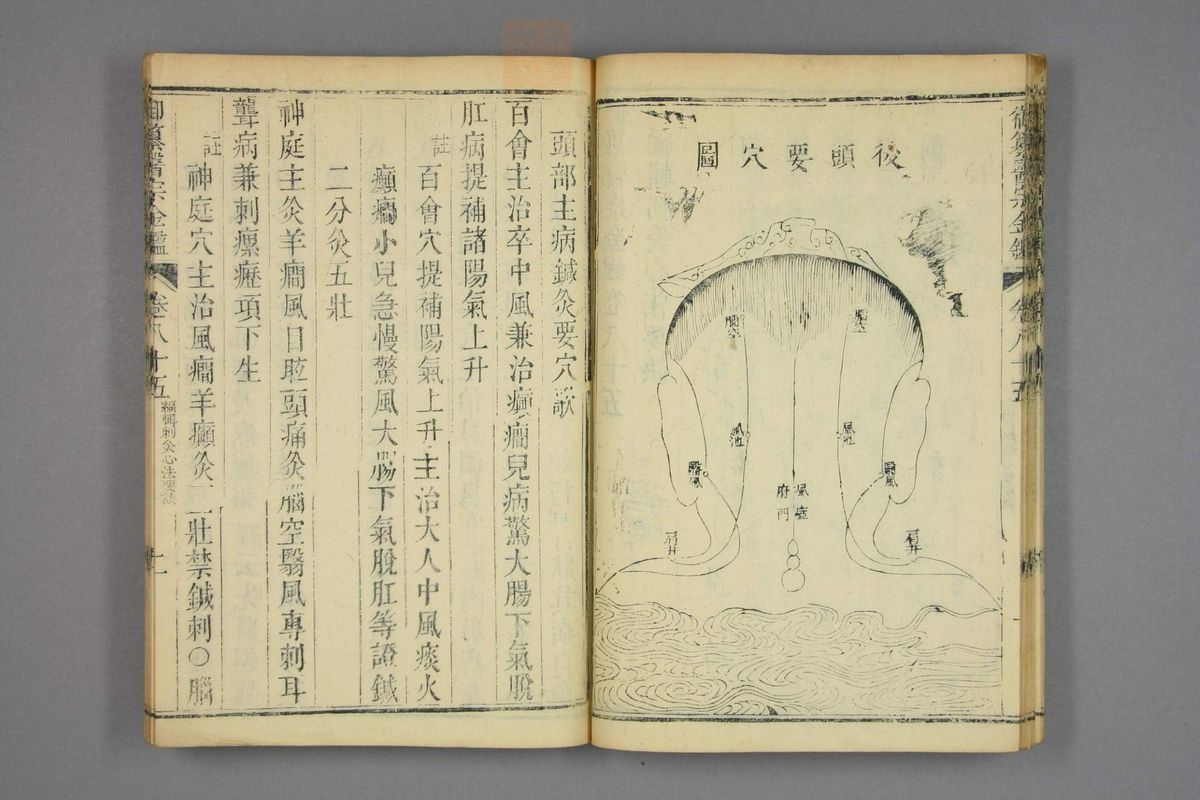 後頭要穴圖
腦空
腦空
風池
風池
翳風
翳風
風府
瘂門
肩井
肩井
御纂醫宗金鑑
卷八十五
頭部主病鍼灸要穴歌
百會主治卒中風兼治癲癇兒病驚大腸下氣脫
肛病提補諸陽氣上升
註
百會穴提補陽氣上升主治大人中風痰火
癲癇小兒急慢驚風大腸下氣脫肛等證鍼
二分灸五壯
神庭主灸羊癇風目眩頭痛灸腦空翳風專刺耳
聾病兼刺瘰癧項下生
註
神庭穴主治風癇羊癲灸三壯禁鍼刺〇腦
御纂醫宗金鑑
卷八十五
編輯刺灸心法要訣
十一